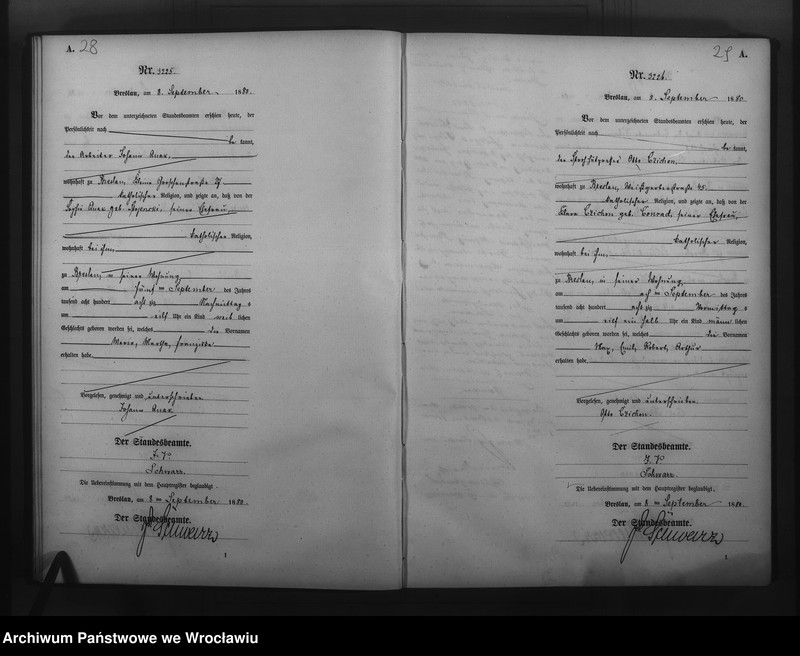 A. 28
Nr. 3225.
Breslau, am 8. September 1880.
Vor dem unterzeichneten Standesbeamten erschien heute, der
Persönlichkeit nach
be kannt,
der Arbeiter Johann
wohnhaft zu Breslau, Kleine Groschenstraße
katholischer Religion, und zeigte an, daß von der
geb. seiner Ehefrau,
katholischer Religion,
wohnhaft bei ihm,
zu Breslau, in seiner Wohnung,
am fünf ten September des Jahres
tausend acht hundert acht zig Nachmittags
um eilf Uhr ein Kind weib lichen
Geschlechts geboren worden sei, welches die Vornamen
Maria, Martha,
erhalten habe.
Vorgelesen, genehmigt und unterschrieben
Johann
Der Standesbeamte.
J. V.
Schwarz.
Die Uebereinstimmung mit dem Hauptregister beglaubigt.
Breslau, am 8 ten September 1880.
Der Standesbeamte.
Schwarz
1
29 A.
Nr. 3226.
Breslau, am September 1880
Vor dem unterzeichneten Standesbeamten erschien heute, der
Persönlichkeit nach
be kannt,
der Otto
wohnhaft zu Breslau, Weißgerberstraße 45.
katholischer Religion, und zeigte an, daß von der
geb. Conrad, seiner Ehefrau,
katholischer Religion,
wohnhaft bei ihm,
zu Breslau, in seiner Wohnung,
am ten September des Jahres
tausend acht hundert acht zig Vormittags
um eilf ein halb Uhr ein Kind männ lichen
Geschlechts geboren worden sei, welches die Vornamen
Max, Emil, Robert, Arthur
erhalten habe.
Vorgelesen, genehmigt und unterschrieben
Otto
Der Standesbeamte.
J. V.
Schwarz.
Die Uebereinstimmung mit dem Hauptregister beglaubigt.
Breslau, am 8 ten September 1880.
Der Standesbeamte.
Schwarz
1
Archiwum Państwowe we Wrocławiu